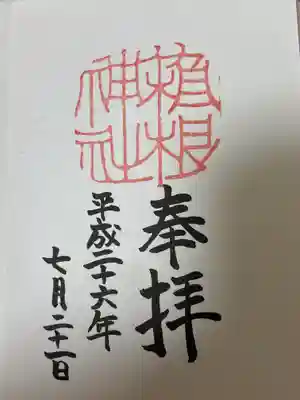 神社
奉拝
平成二十六年
七月二十一日